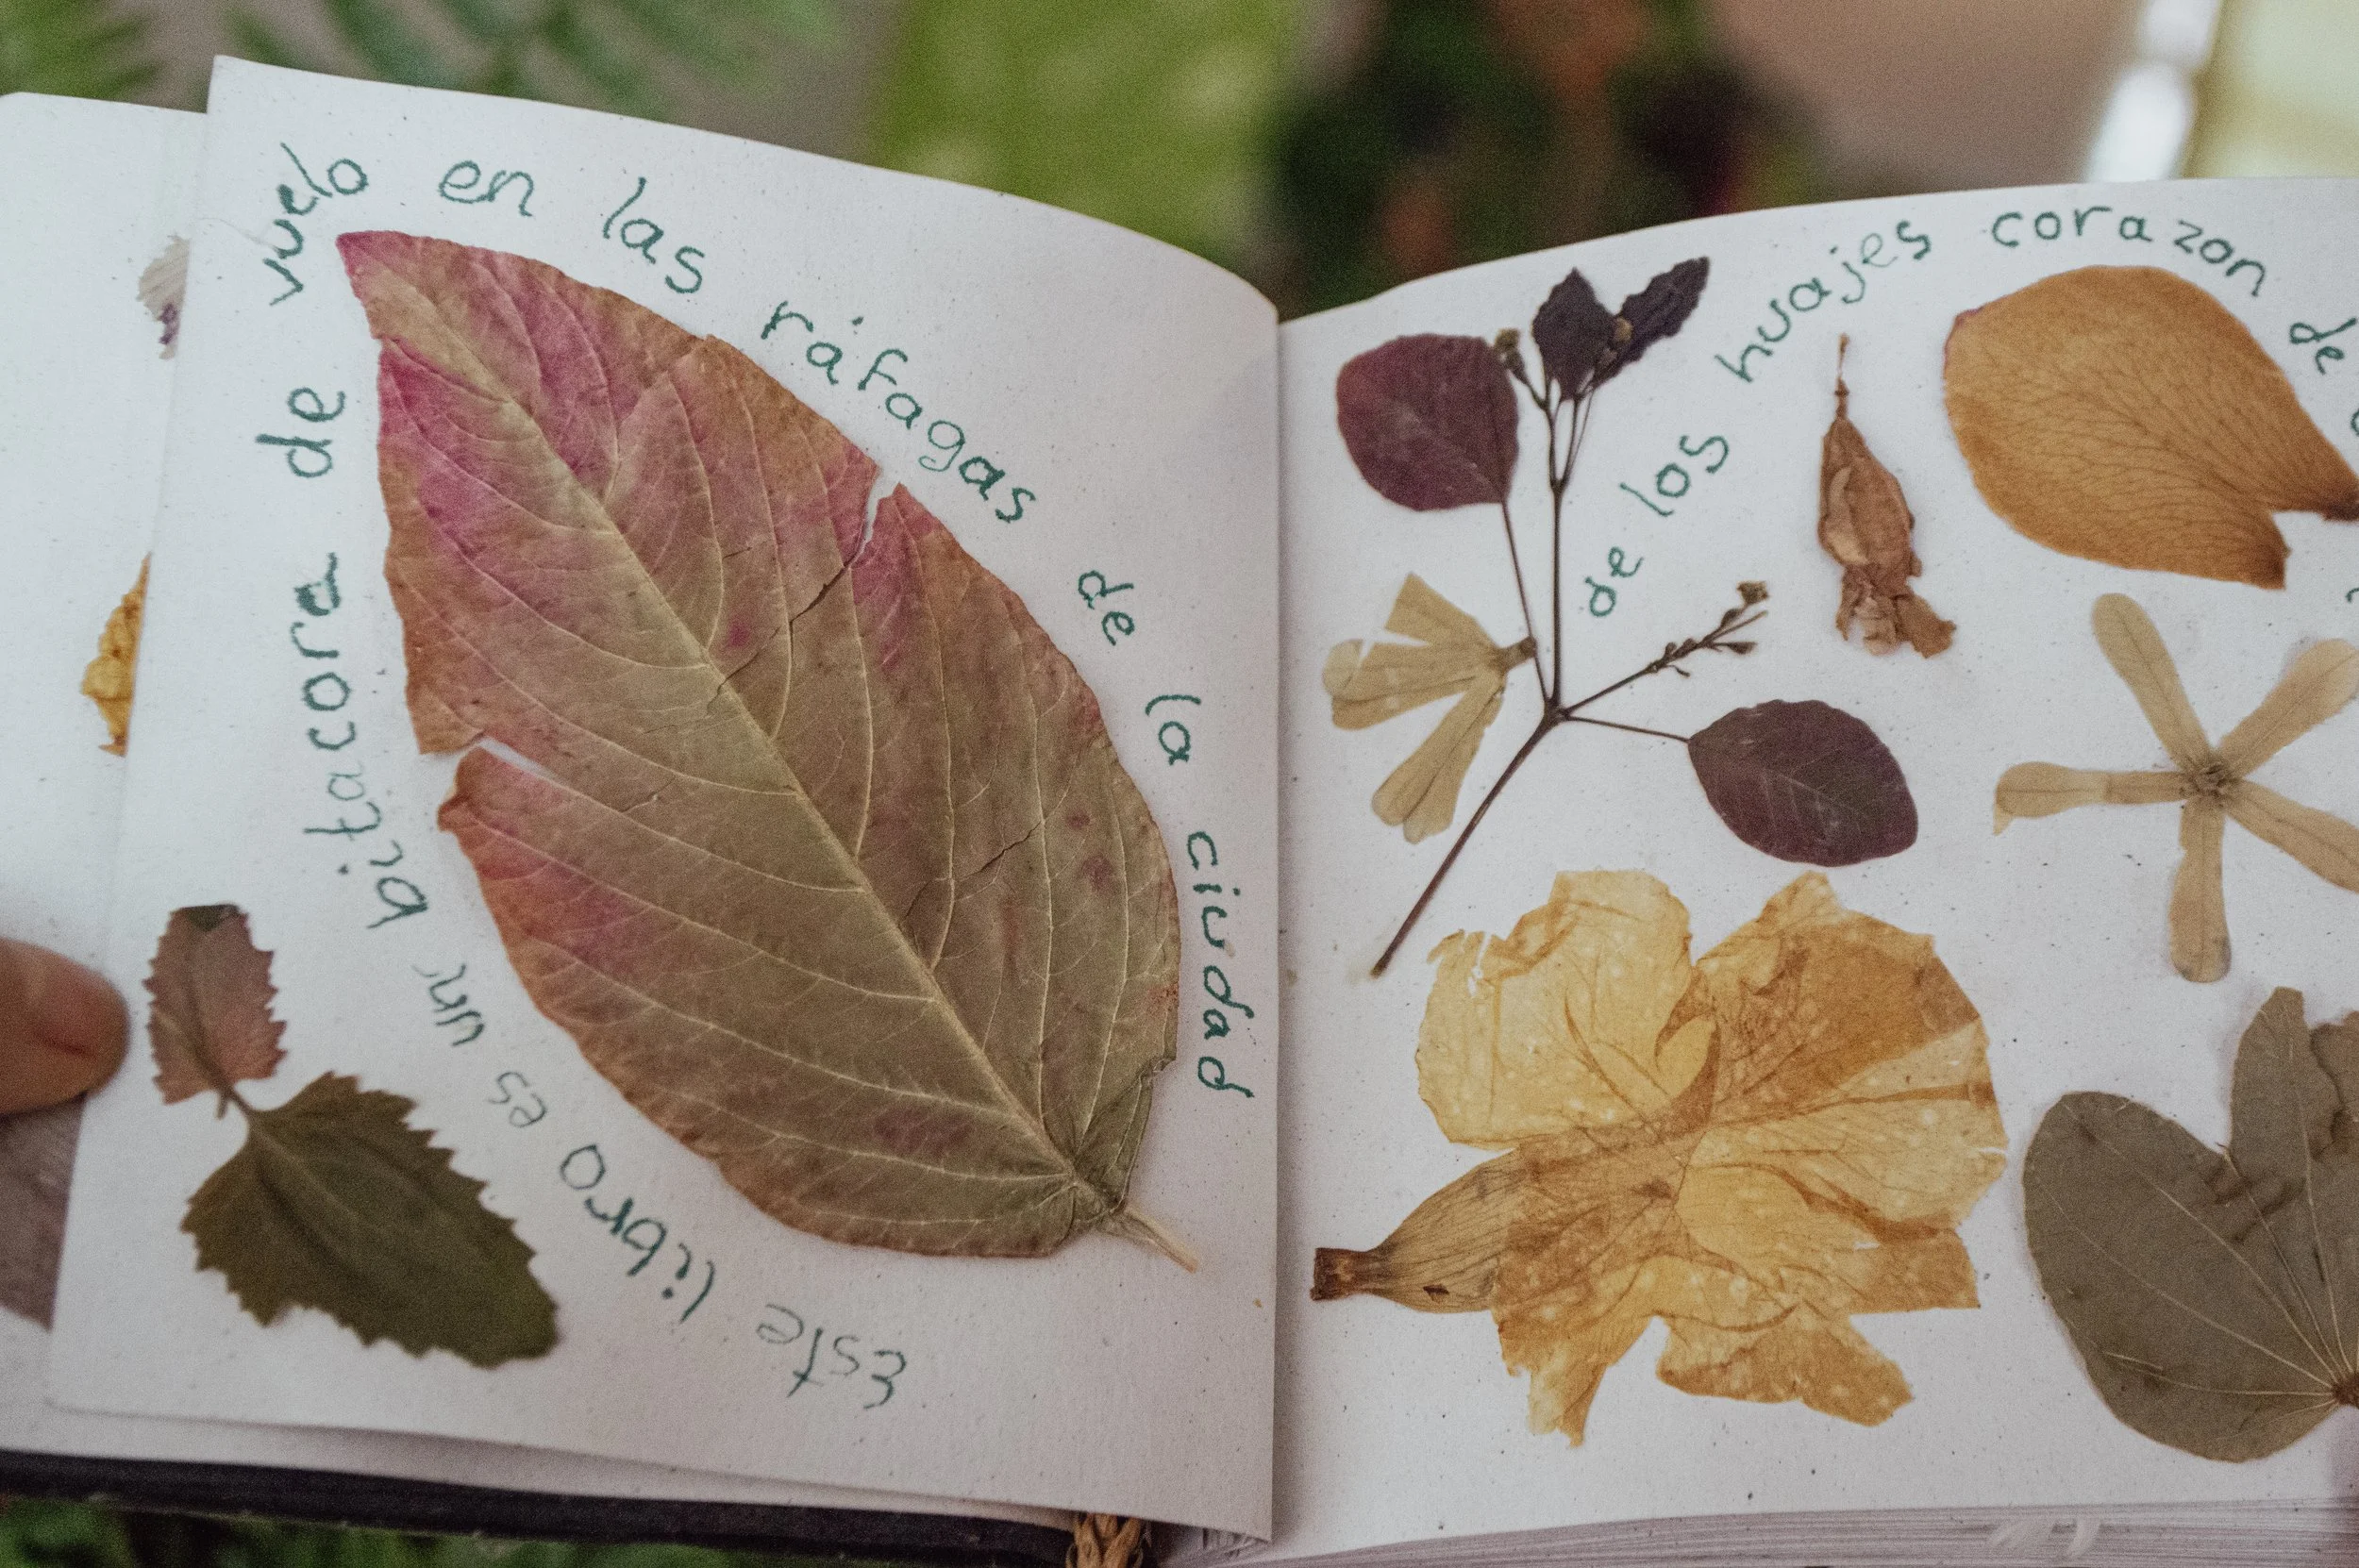 Este libro es un bitacora de vuelo en las ráfagas de la ciudad
de los huajes corazon de